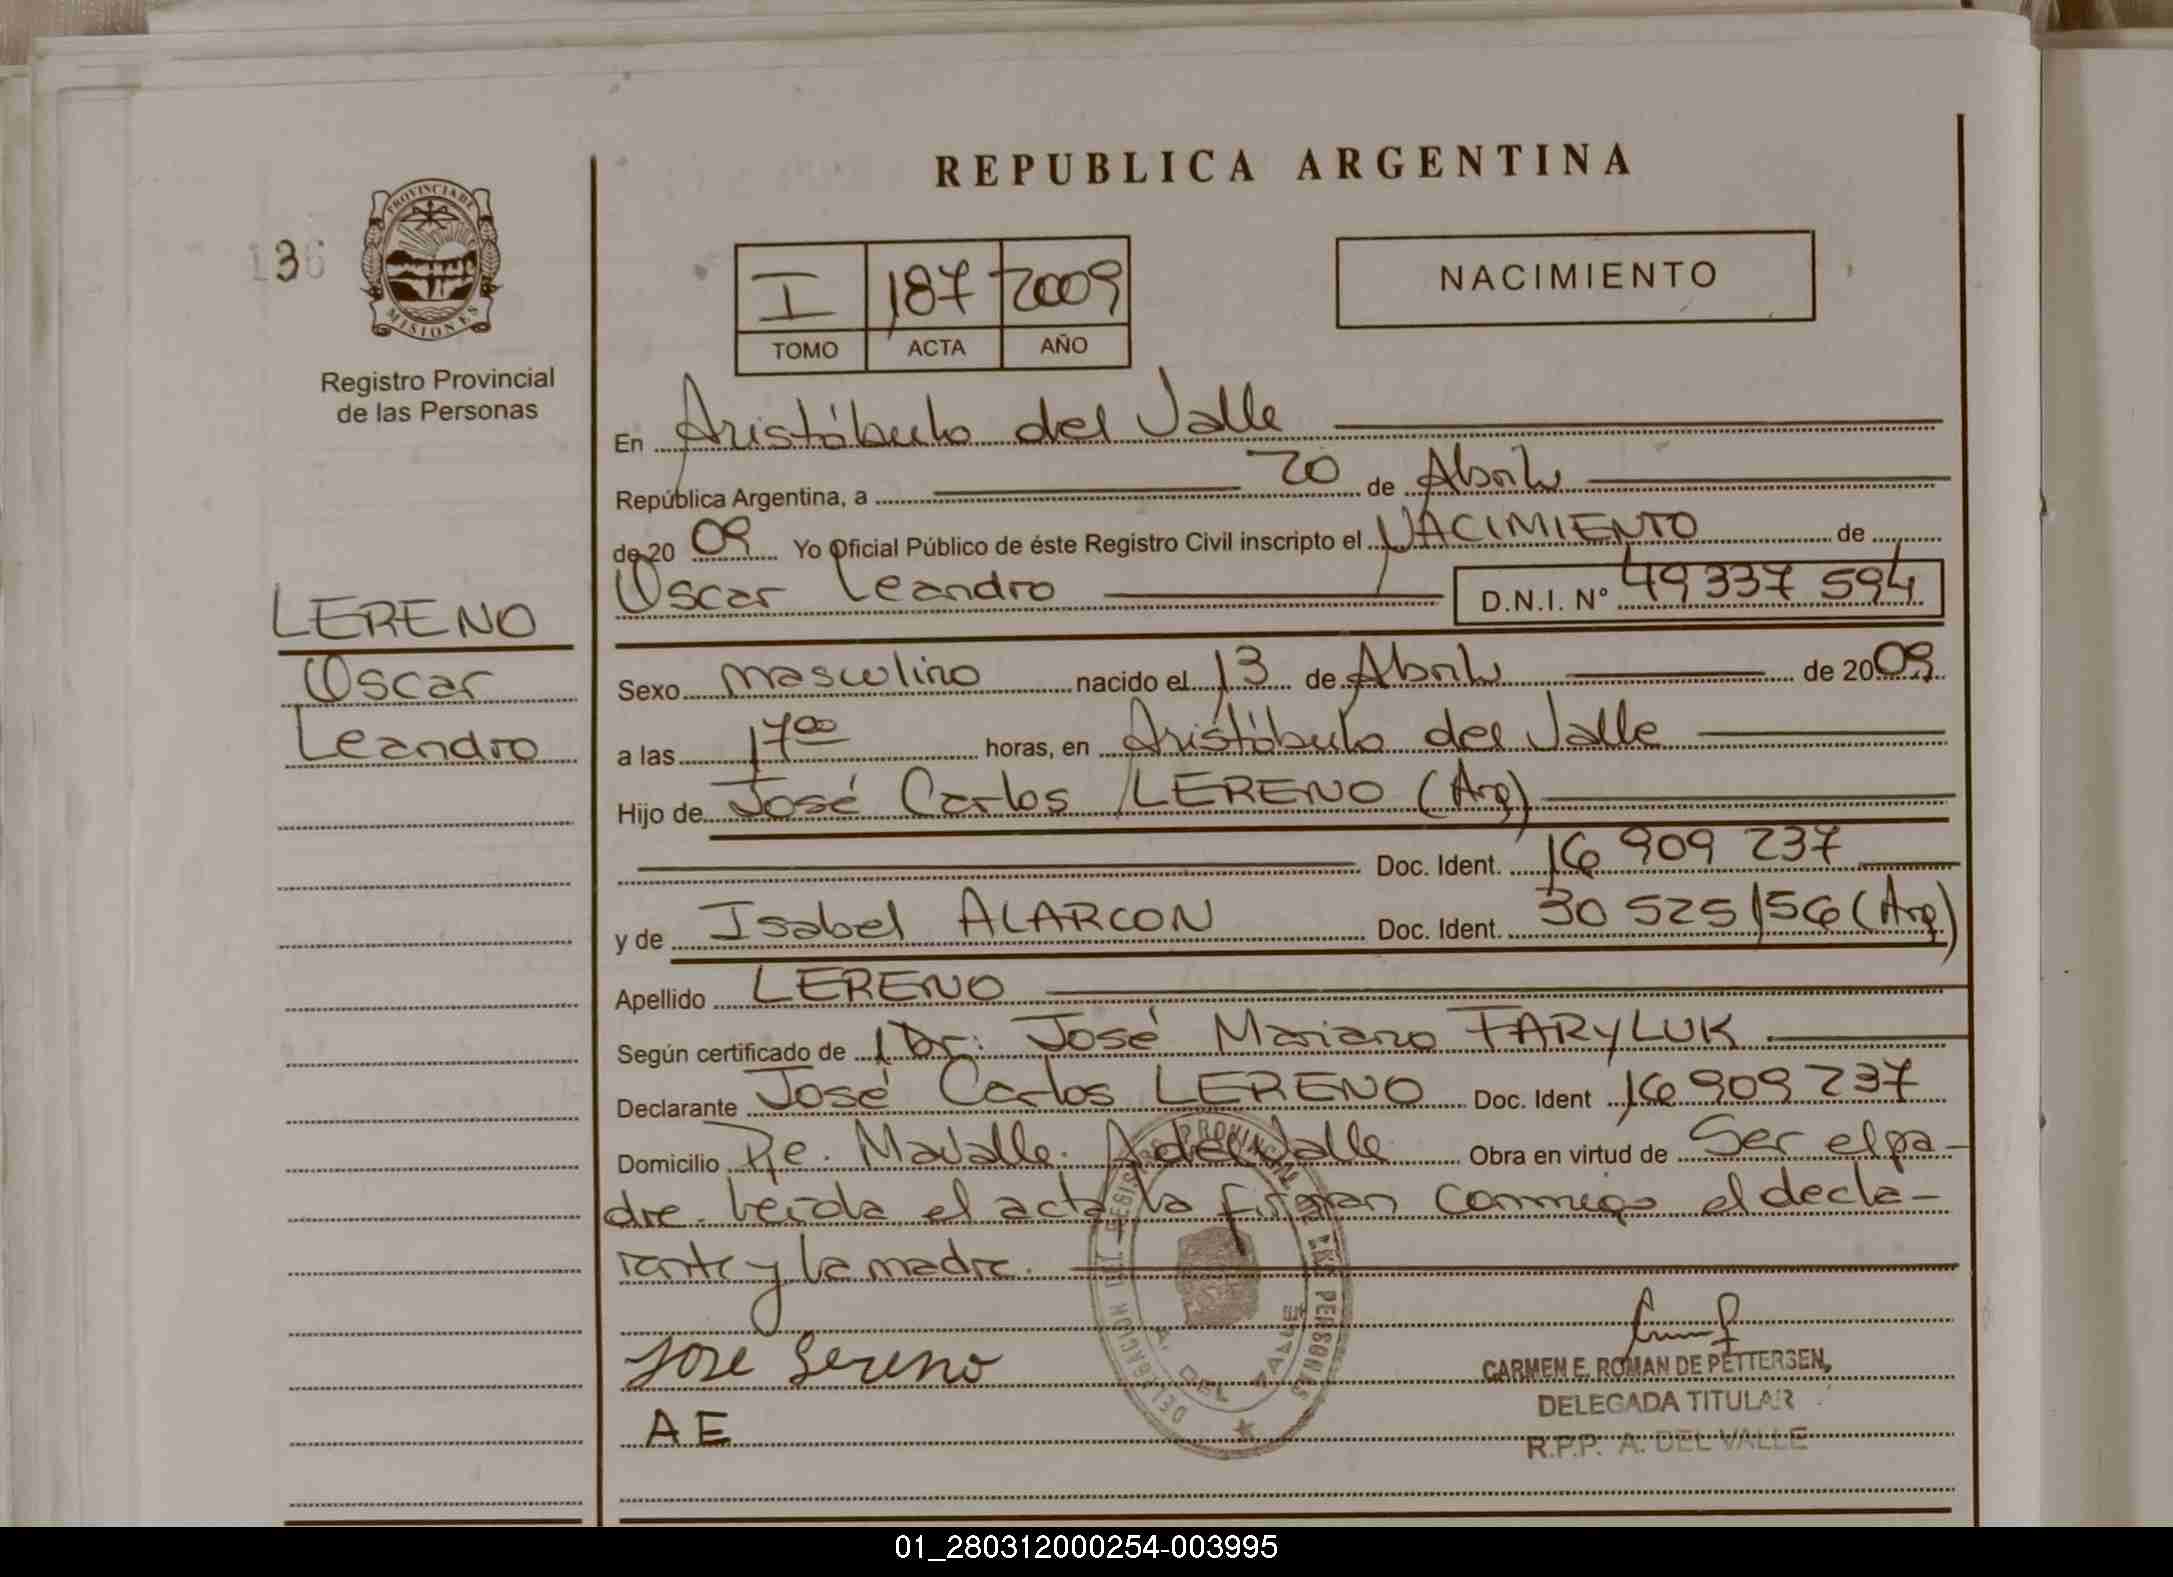 REPUBLICA ARGENTINA
136
PROVINCIA DE
MISIONES
Registro Provincial
de las Personas
I 187 2009
TOMO ACTA AÑO
NACIMIENTO
En Aristóbulo del Valle
República Argentina, a 20 de Abril
de 2009 Yo Oficial Público de éste Registro Civil inscripto el NACIMIENTO de
Oscar Leandro D.N.I. N° 49337 594
LERENO
Oscar
Leandro
Sexo masculino nacido el 13 de Abril de 2009
a las 17 00 horas, en Aristóbulo del Valle
Hijo de José Carlos LERENO (Arg)
Doc. Ident. 16 909 237
y de Isabel ALARCON Doc. Ident. 30 525 156 (Arg)
Apellido LERENO
Según certificado de Dr. José Mariano FARYLUK
Declarante José Carlos LERENO Doc. Ident 16 909 237
Domicilio Pje. Mavalle. A del Valle Obra en virtud de Ser el pa-
dre. Leída el acta la firman conmigo el decla-
rante y la madre.
DELEGACION DEL REGISTRO PROVINCIAL DE LAS PERSONAS
A. DEL VALLE
Jose Lereno
A E
CARMEN E. ROMAN DE PETTERSEN
DELEGADA TITULAR
R.P.P. A. DEL VALLE
01_280312000254-003995